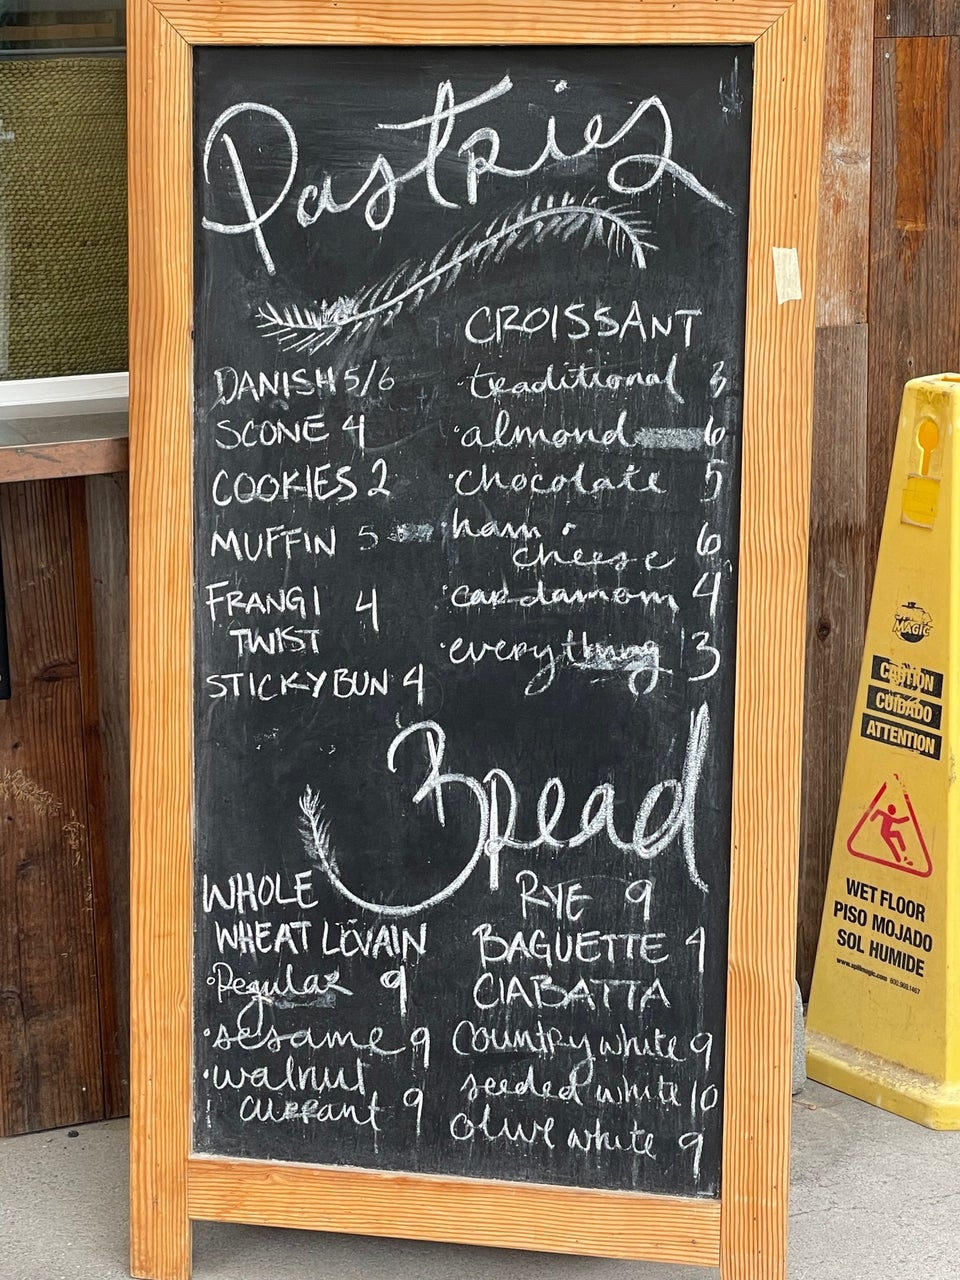 Pastries
DANISH 5/6
SCONE 4
COOKIES 2
MUFFIN 5
FRANGI 4
TWIST
STICKYBUN 4
CROISSANT
·traditional 3
·almond 6
·chocolate 5
·ham ·
cheese 6
·cardamom 4
·everything 3
Bread
WHOLE
WHEAT LEVAIN
·Regular 9
·sesame 9
·walnut
currant 9
RYE 9
BAGUETTE 4
CIABATTA
Country white 9
seeded white 10
olive white 9
MAGIC
CAUTION
CUIDADO
ATTENTION
WET FLOOR
PISO MOJADO
SOL HUMIDE
www.spillmagic.com